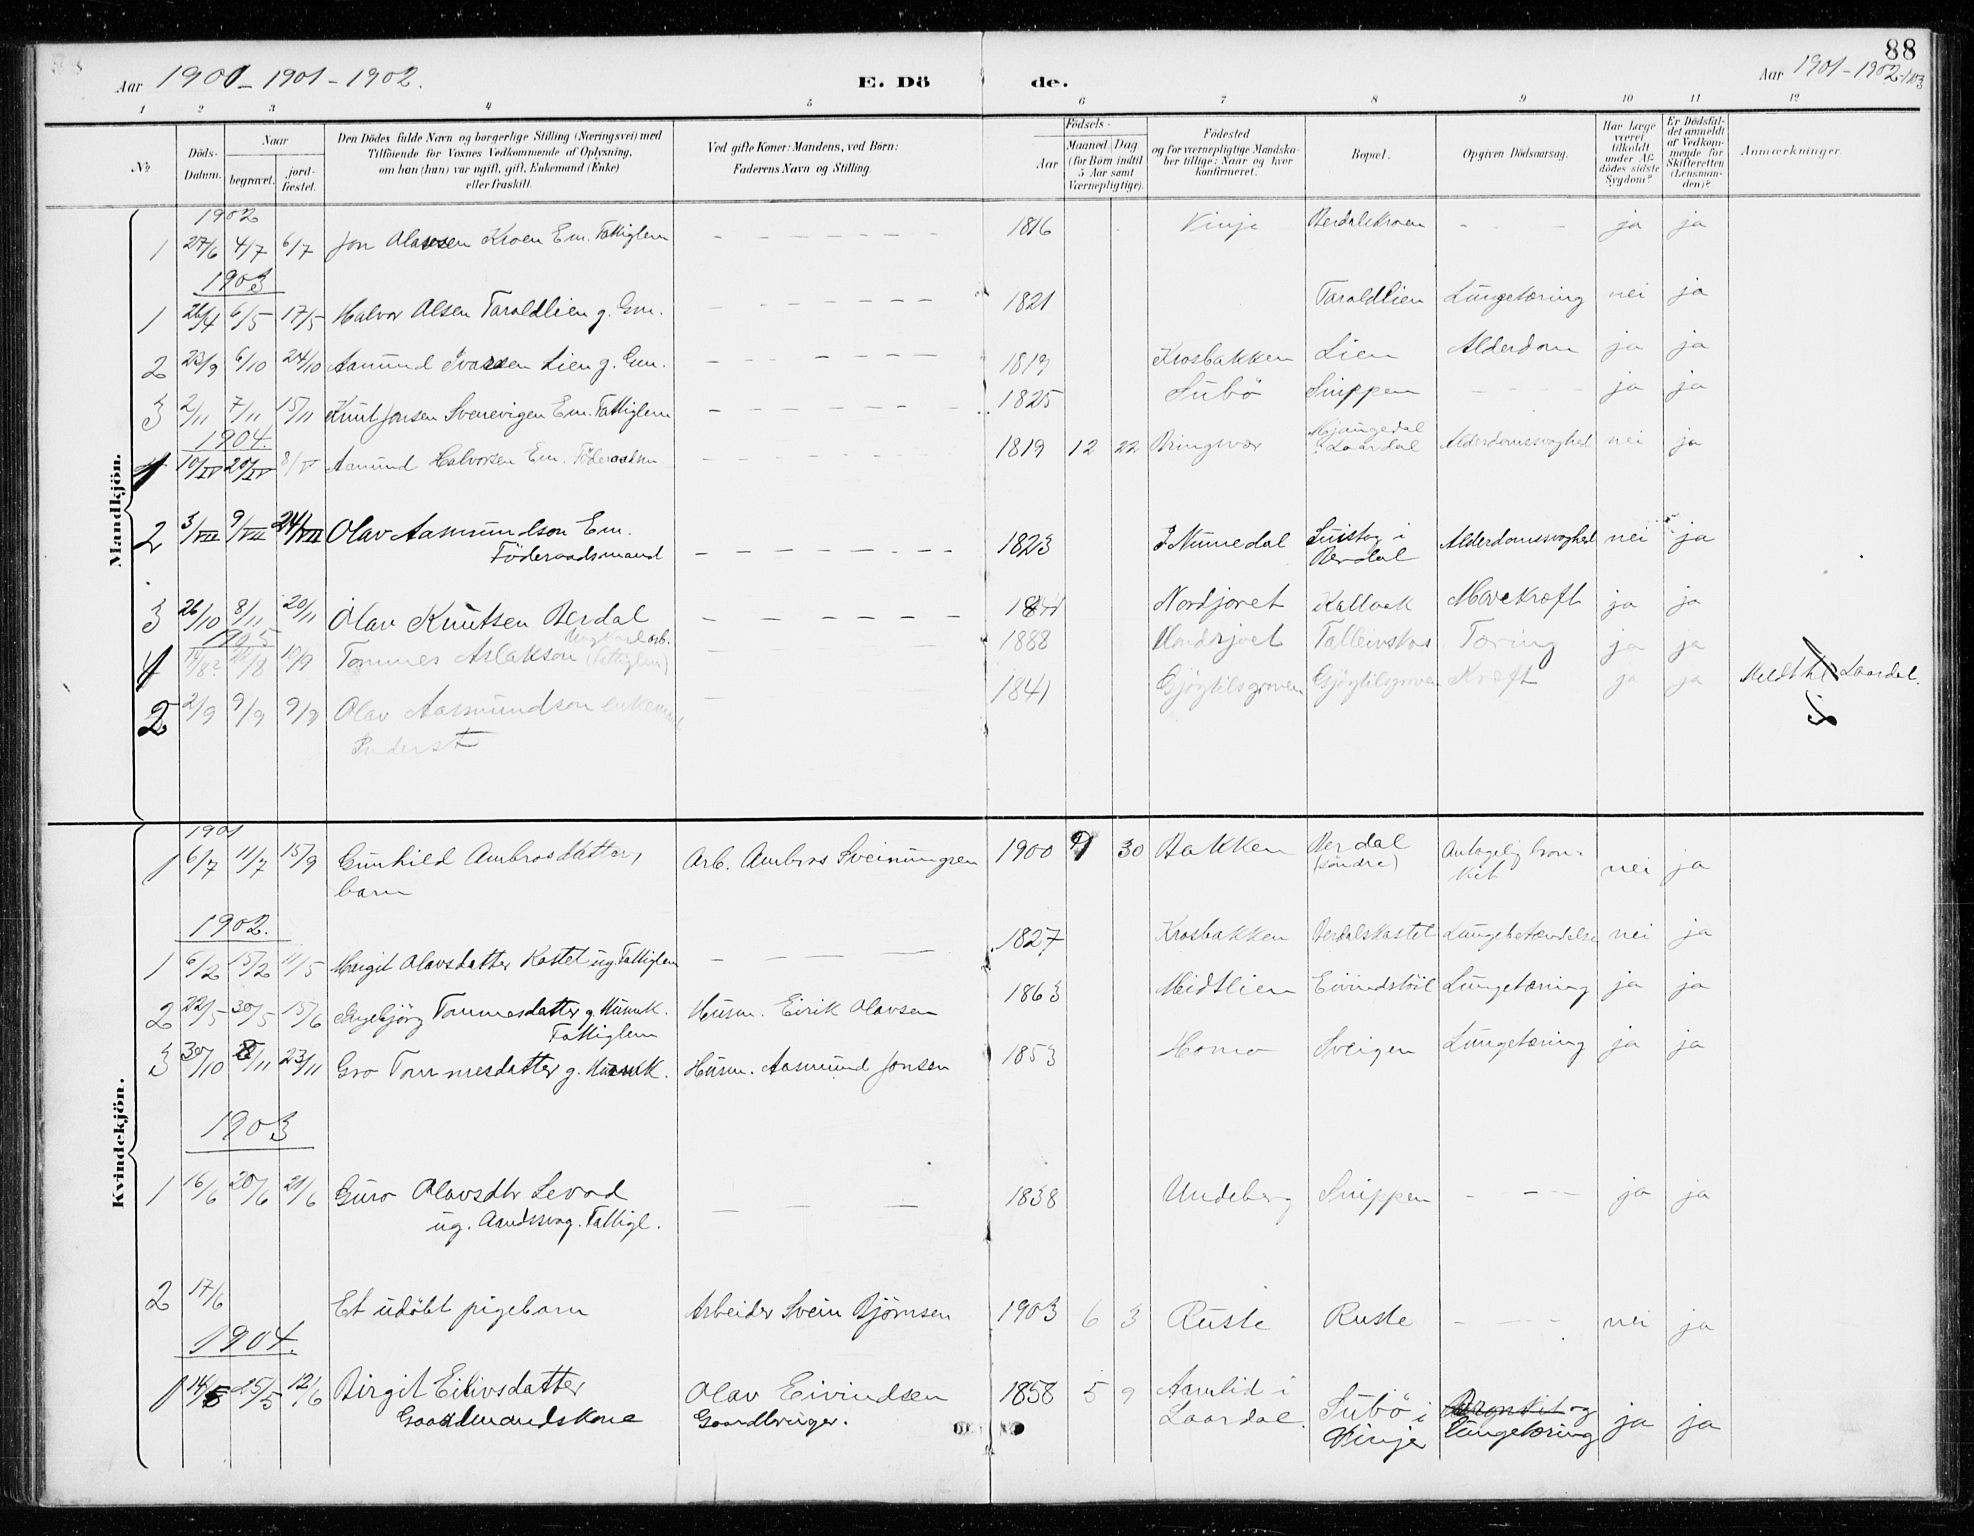 88
Aar 1900-1901-1902. E. Dö de. Aar 1901-1902-1903
1 2 3 4 5 6 7 8 9 10 11 12
No. Döds-Datum. Naar begravet. jord-fæstet. Den Dödes fulde Navn og borgerlige Stilling (Næringsvei) med Tilföiende for Voxnes Vedkommende af Oplysning, om han (hun) var ugift, gift, Enkemand (Enke) eller fraskilt. Ved gifte Koner: Mandens, ved Börn: Faderens Navn og Stilling. Födsels- Aar Maaned Dag (for Börn indtil 5 Aar samt Værnepligtige). Födested og for værnepligtige Mandskaber tillige: Naar og hvor konfirmeret. Bopæl. Opgiven Dödsaarsag. Har Læge været tilkaldt under Afdödes sidste Sygdom? Er Dödsfaldet anmeldt af Vedkommende for Skifteretten (Lensmanden)? Anmærkninger.
Mandkjön.
1902
1 27/6 4/7 6/7 Jon Olavsen Kroen Em. Fattiglem – – – – – – 1816 Vinje Berdalskroen – – – ja ja
1903
1 26/4 6/5 17/5 Halvor Olsen Taraldlien g. Gm. – – – – – – 1821 Taraldlien Lungetæring nei ja
2 23/9 6/10 24/10 Aamund Ivarsen Lien g. Gm. – – – – – 1819 Krosbakken Lien Alderdom ja ja
3 2/11 7/11 15/11 Knut Jonsen Svenevigen Em. Fattiglem – – – – – – 1825 Subö Snippen – – – – ja ja
1904.
1 10/IV 20/IV 8/V Aamund Halvorsen Em. Föderaadsm – – – – – – 1819 12 22 Bringsvær Mjaugedal i Laardal Alderdomssvaghed nei ja
2 3/VII 9/VII 24/VII Olav Aasmundson Em. – – – – – – 1823 I Numedal i Berdal Alderdomssvaghed nei ja
Föderaadsmand
3 26/10 8/11 20/11 Olav Knutsen Berdal – – – – – – Nordjoret Mavekræft ja ja
1905
1 10/9 Tommes Aslakson Ungkarl arb. (Fattiglem) 1888 Tæring ja ja Meldt til Laardal.
2 2/9 9/9 9/9 Olav Aasmundson enkemand 1841 Gjögtilsgroven Gjögtilsgroven Kræft ja ja
Inderst
Kvindekjön.
1901
1 6/7 11/7 15/9 Gunhild Ambrosdatter, Arb. Ambros Sveinungsen 1900 9 30 Bakken Berdal (söndre) Antagelig bron-kit nei ja
barn
1902.
1 6/2 15/2 11/5 Margit Olavsdatter Kastet ug. Fattiglem – – – – 1827 Krosbakken Berdalskastet Lungebetændelse nei ja
2 22/5 30/5 15/6 Ingebjörg Tommesdatter g. Husmk. Husm. Eirik Olavsen 1863 Midtlien Eivindstöil Lungetæring ja ja
Fattiglem
3 30/10 8/11 23/11 Gro Tommesdatter g. Husmk. Husm. Aasmund Jonsen 1853 Homo Sveigen Lungetæring ja ja
1903
1 16/6 20/6 21/6 Guro Olavsdtr Levad – – – 1838 Undeberg Snippen – – – ja ja
ug. Aandssvag. Fattigl.
2 17/6 Et udöbt pigebarn Arbeider Svein Björnsen 1903 6 3 Ruste Ruste – – – nei ja
1904.
1 14/5 25/5 12/6 Birgit Eilivsdatter Olav Eivindsen 1858 5 9 Aamlid i Laardal. Subö i Vinje Bronkit og Lungetæring ja ja
Gaardmandskone Gaardbruger.